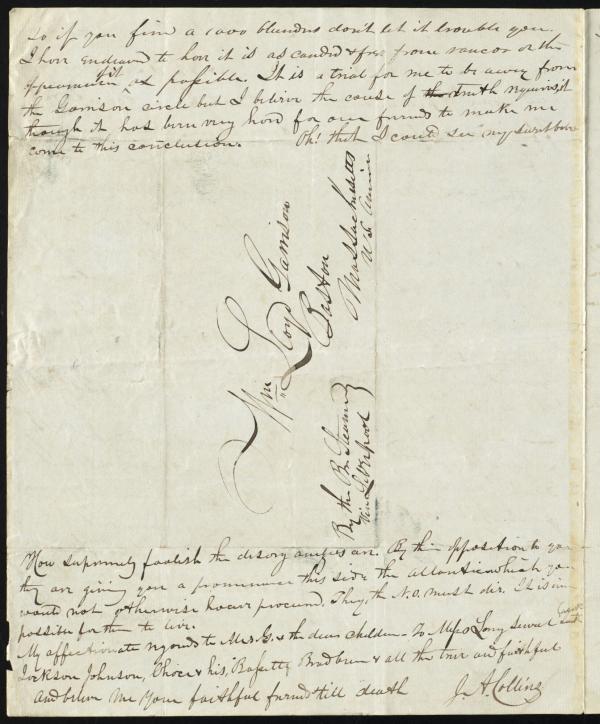 So if you find a 1000 blunders don't let it trouble you.
I have endeavored to have it is as candid & free from rancor or the
as possible. It is a trial for me to be away from
the Garrison circle but I believe the cause of the truth requires it
though it has been very hard for our friends to make me
come to this conclusion. Oh! that I could see my sweet
Wm Loyd Garrison
Boston
Massachusetts
U.S. America
By the Br. Steamer
Via Liverpool
How supremely foolish the disorganizers are. By their opposition to you
they are giving you a prominence this side the atlantic which you
would not otherwise have procured. They, the N.O. must die. It is im
possible for them to live.
My affectionate regards to Mrs. G. & the dear children. To Messrs Loring Sewall
Jackson Johnson, Chace & his, Bassett, Bradburn & all the true and faithful
and believe me your faithful friend till death J. A. Collins